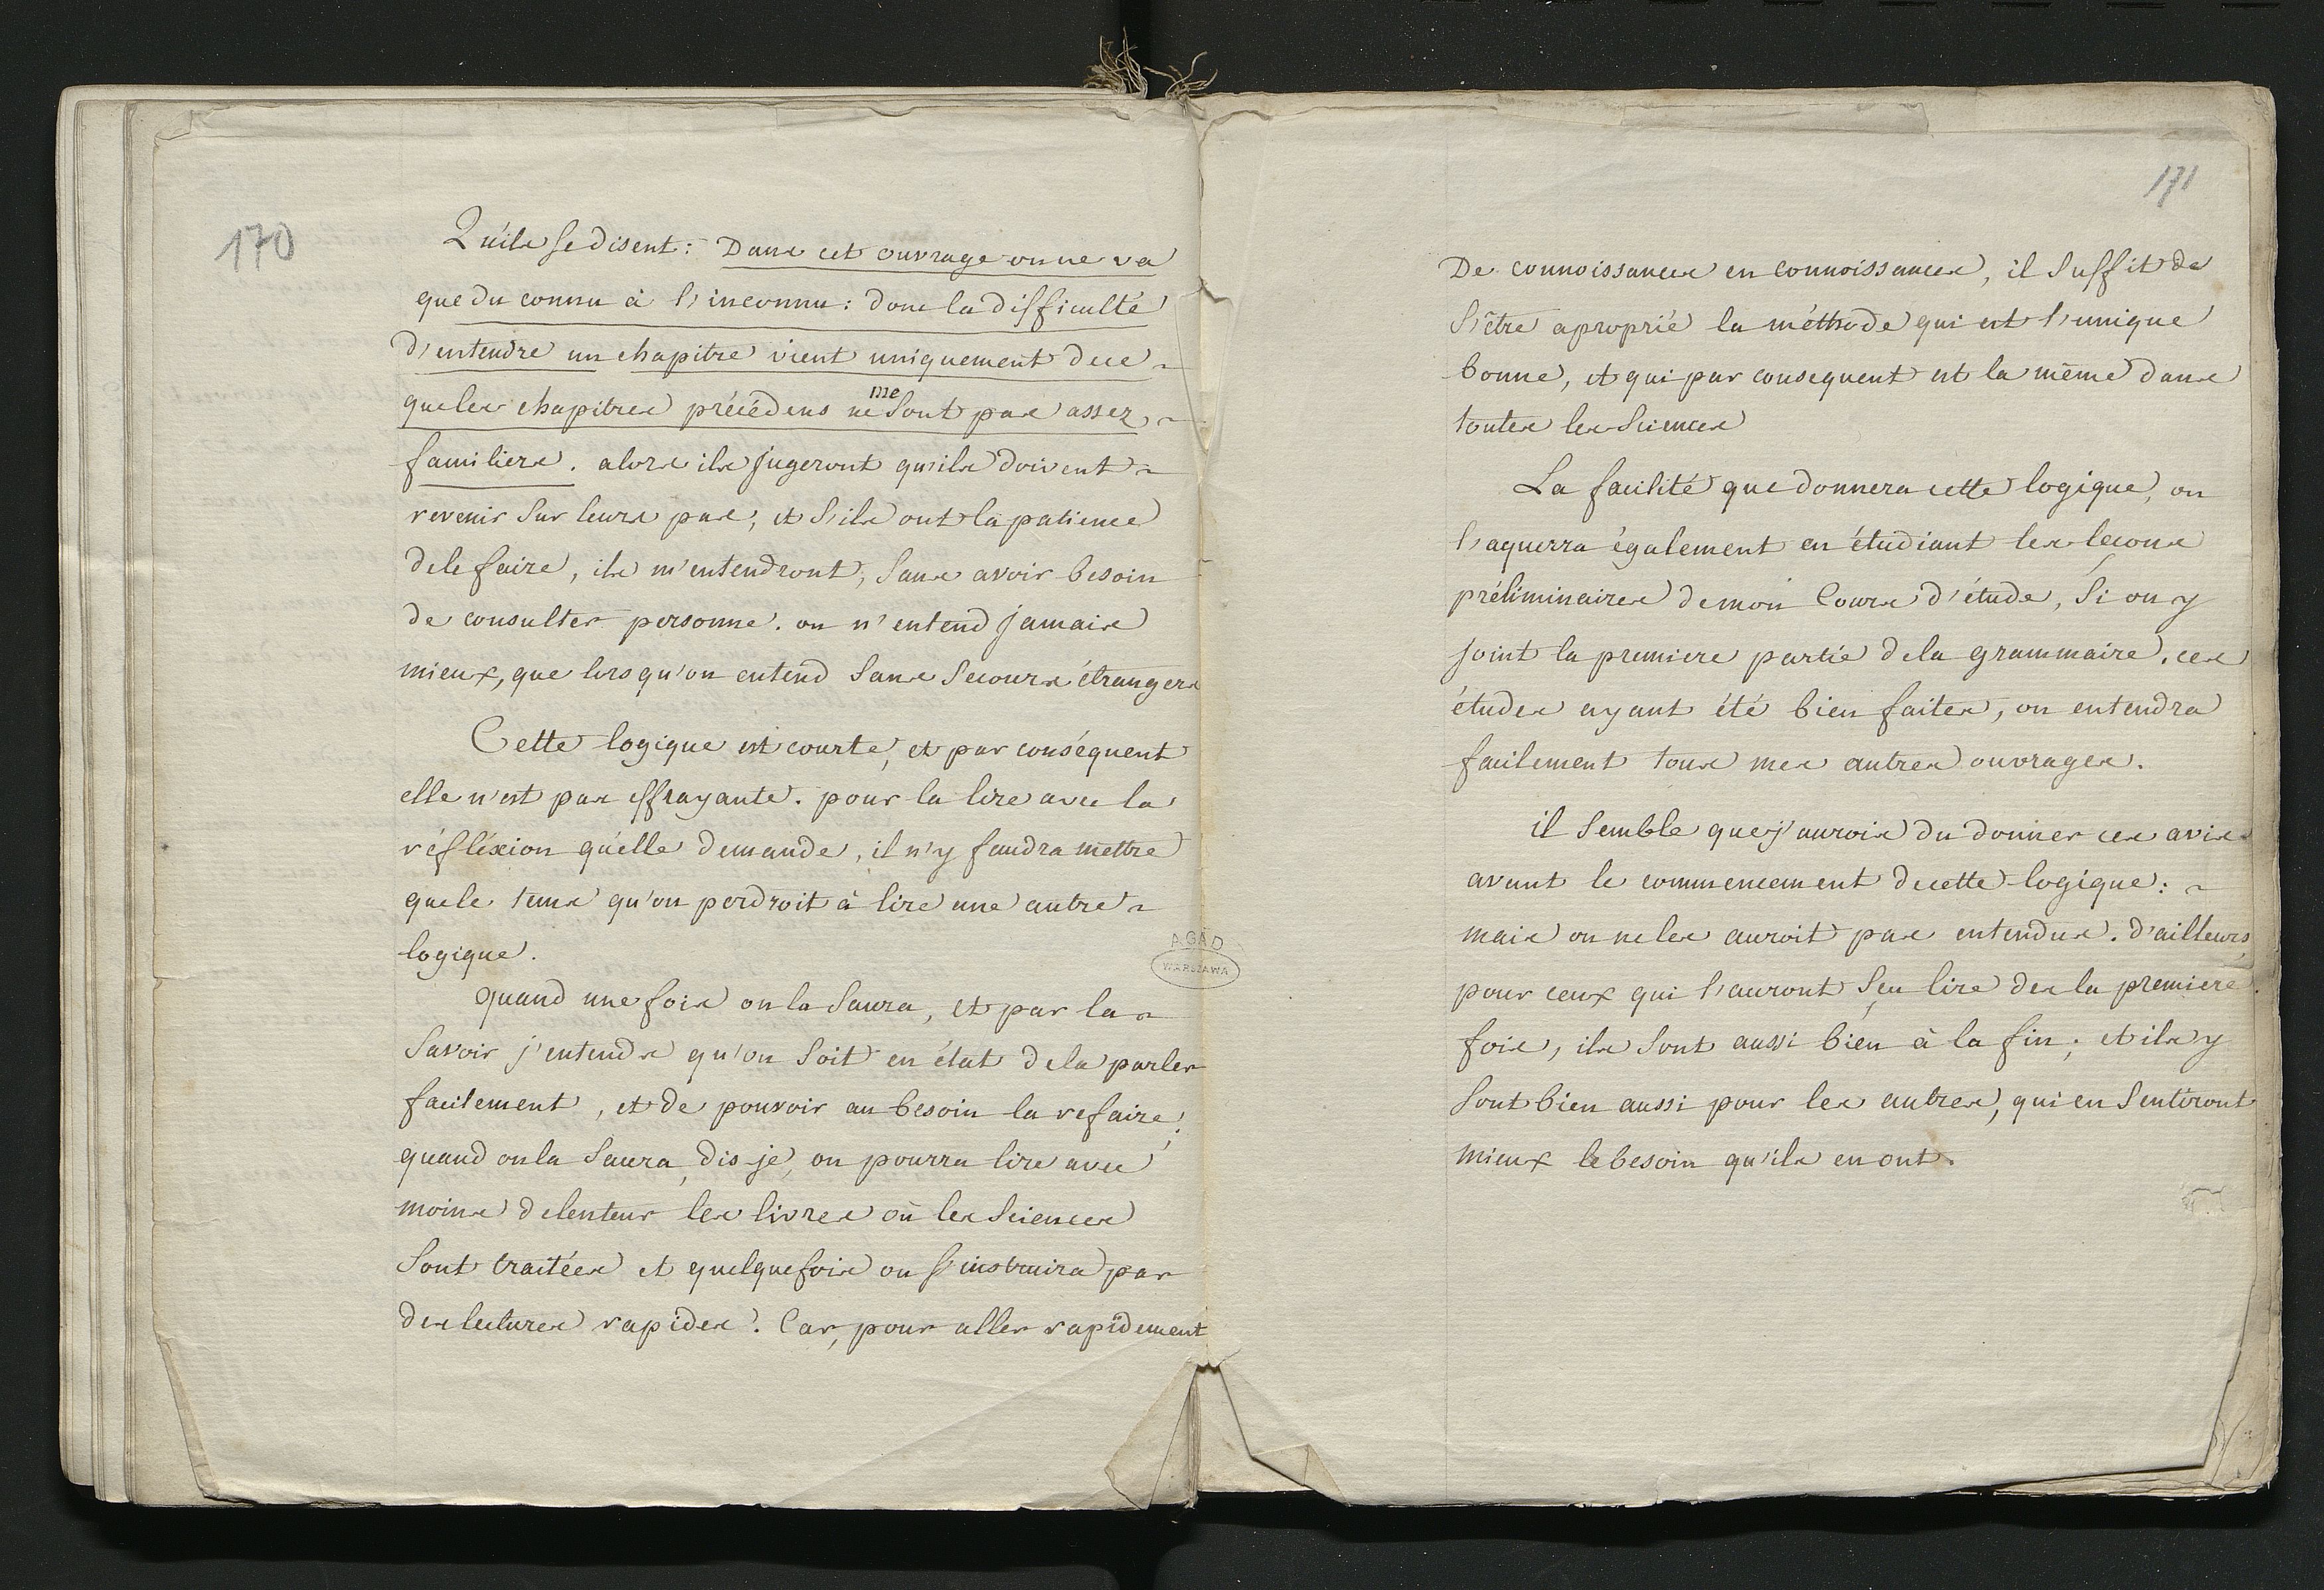 170
Qu'ils se disent: Dans cet ouvrage on ne va
que du connu à l'inconnu: donc la difficulté
d'entendre un chapitre vient uniquement de ce
que les chapitres précédens ne me sont pas assez
familiers. alors ils jugeront qu'ils doivent
revenir sur leurs pas; et s'ils ont la patience
de le faire, ils m'entendront, sans avoir besoin
de consulter personne. on n'entend jamais
mieux, que lorsqu'on entend sans secours étrangers
Cette logique est courte, et par conséquent
elle n'est pas effrayante. pour la lire avec la
réfléxion qu'elle demande, il n'y faudra mettre
que le tems qu'on perdroit à lire une autre
logique.
quand une fois on la saura, et par la
savoir j'entends qu'on soit en état de la parler
facilement, et de pouvoir au besoin la refaire;
quand on la saura, dis-je, on pourra lire avec
moins de lenteur les livres où les sciences
sont traitées et quelquefois on s'instruira par
des lectures rapides. Car, pour aller rapidement
AGAD
WARSZAWA
171
De connoissances en connoissances, il suffit de
s'être aproprié la méthode qui est l'unique
bonne, et qui par consequent est la même dans
toutes les sciences
La facilité que donnera cette logique, on
l'aquerra également en étudiant les leçons
préliminaires de mon Cours d'étude, si on y
joint la premiere partie de la grammaire. ces
études ayant été bien faites, on entendra
facilement tous mes autres ouvrages.
il semble que j'aurois du donner ces avis
avant le commencement de cette logique:
mais on ne les auroit pas entendus. d'ailleurs,
pour ceux qui l'auront sçu lire des la premiere
fois, ils sont aussi bien à la fin; et ils y
sont bien aussi pour les autres, qui en sentiront
mieux le besoin qu'ils en ont.